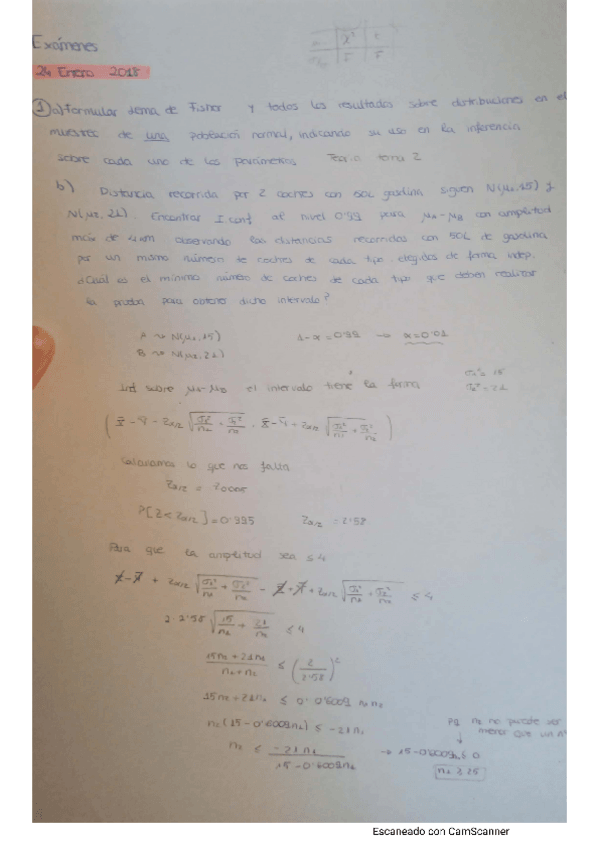 Exámenes
24 Enero 2018
① a) Formular tema de Fisher y todos los resultados sobre distribuciones en el
muestreo de una población normal, indicando su uso en la inferencia
sobre cada uno de los parámetros Teoría tema 2
b) Distancia recorrida por 2 coches con 50L gasolina siguen N(μ₁,15) y
N(μ₂,21). Encontrar I.conf al nivel 0'99 para μA-μB con amplitud
máx de 4km observando las distancias recorridas con 50L de gasolina
por un mismo número de coches de cada tipo elegidos de forma indep.
¿Cuál es el mínimo número de coches de cada tipo que deben realizar
la prueba para obtener dicho intervalo?
A ~ N(μ₁,15) 1-α=0'99 → α=0'01
B ~ N(μ₂,21)
Inf sobre μA-μB el intervalo tiene la forma
σ₁²=15
σ₂²=21
lo que nos falta
Zα/2 = Z0'005
P[Z<Zα/2]=0'995 Zα/2=2'58
Para que la amplitud sea ≤4
2·2'58 √(15/n₁ + 21/n₂) ≤ 4
(15n₂+21n₁)/(n₁+n₂) ≤ (2/2'58)²
15n₂+21n₁ ≤ 0'6009 n₁n₂
n₂(15-0'6009n₁) ≤ -21n₁
pq n₂ no puede ser
menor que un nº
n₂ ≤ -21n₁/(15-0'6009n₁) → 15-0'6009n₁ ≤ 0
n₁ ≥ 25
Escaneado con CamScanner